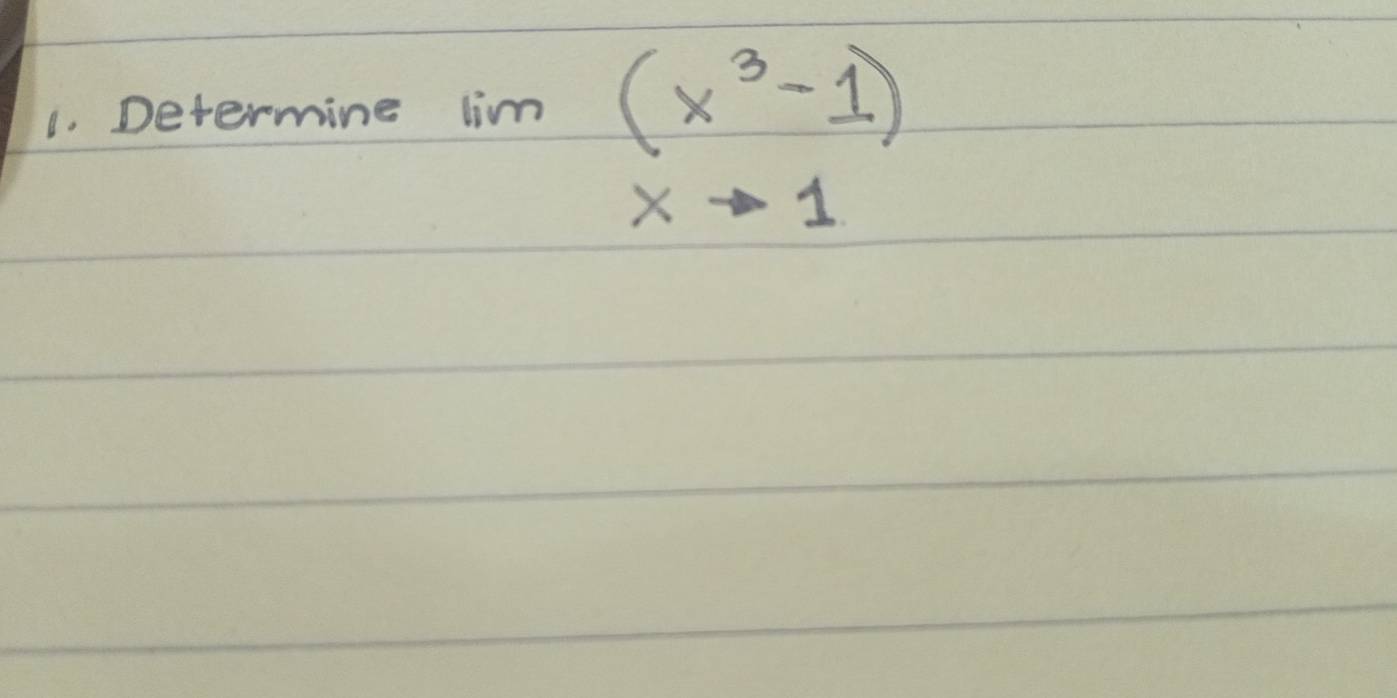 1. Determine lim (x³-1)
x → 1